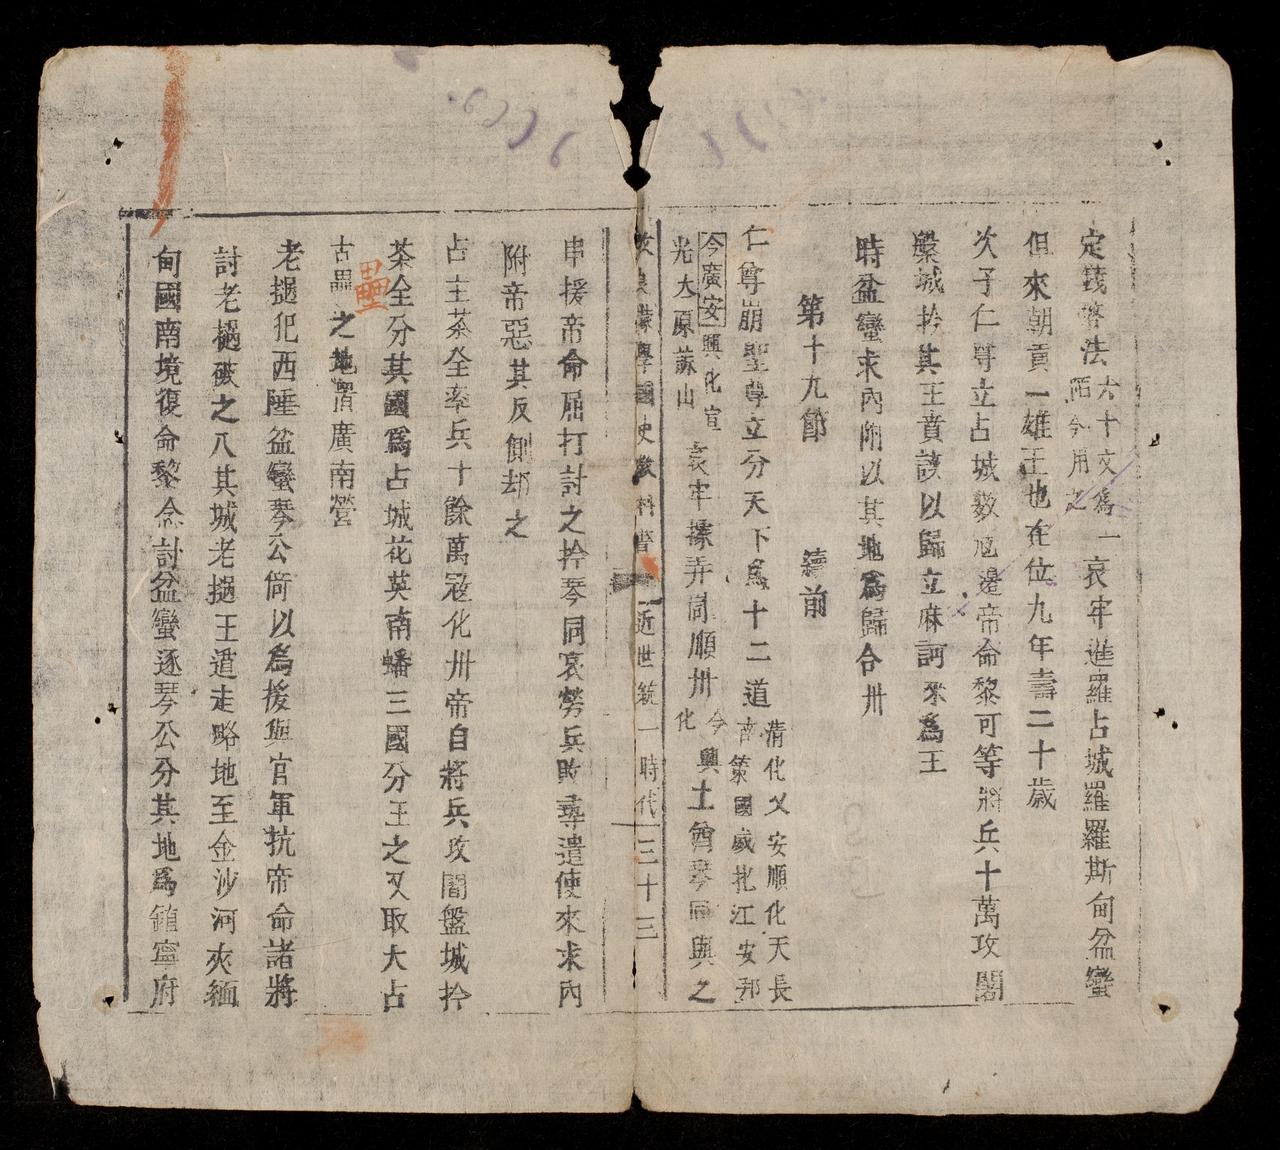 定錢陌法六十文爲一陌今用之哀牢進羅占城羅羅斯甸盆蠻
但來朝貢一雄王也在位九年壽二十歲
次子仁尊立占城數寇邊帝命黎可等將兵十萬攻闍
槃城扲其王賁該以歸立麻訶來爲王
時盆蠻求內附以其地爲歸合卅
第十九節 續前
仁尊崩聖尊立分天下爲十二道清化乂安順化天長南策國威北江安邦
今廣安興化宣光太原諒山哀牢掾弄同順卅今興化土酋琴同與之
蒙學國史教科書 近世統一時代 三十三
串援帝命屈打討之扲琴同哀勞兵敗尋遣使來求內
附帝惡其反側却之
占主茶全率兵十餘萬寇化卅帝自將兵攻闍盤城扲
茶全分其國爲占城花英南蟠三國分王之又取大占
古壘之地置廣南營
壘
老撾犯西陲盆蠻琴公倚以爲援與官軍抗帝命諸將
討老撾破之入其城老撾王遁走略地至金沙河夾緬
甸國南境復命黎念討盆蠻逐琴公分其地爲鎮寧府